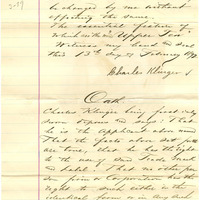 2037
be changed by me without
affecting the same.
The essential feature of
which is the "Upper Ten"
Witness my hand and seal
this 13th day of February 1890
Charles Klinger
Oath
Charles Klinger being first duly
sworn deposes and says: That
he is the applicant above named
That the facts above set forth
are true; that he has the right
to the use of said Trade Mark
and Label. That no other per-
son firm or Corporation has the
right to such either in the
identical form or in any such